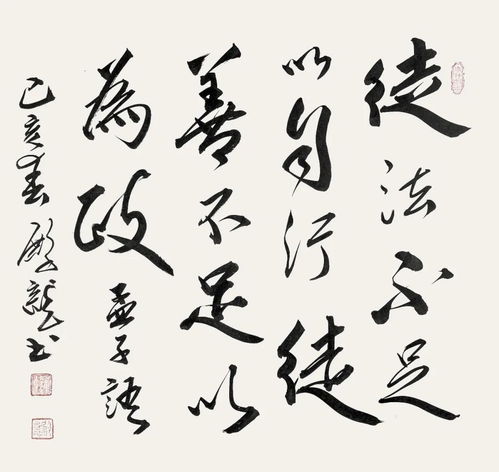 徒法不足
以自行徒
善不足以
為政 孟子語
己亥春 龍书